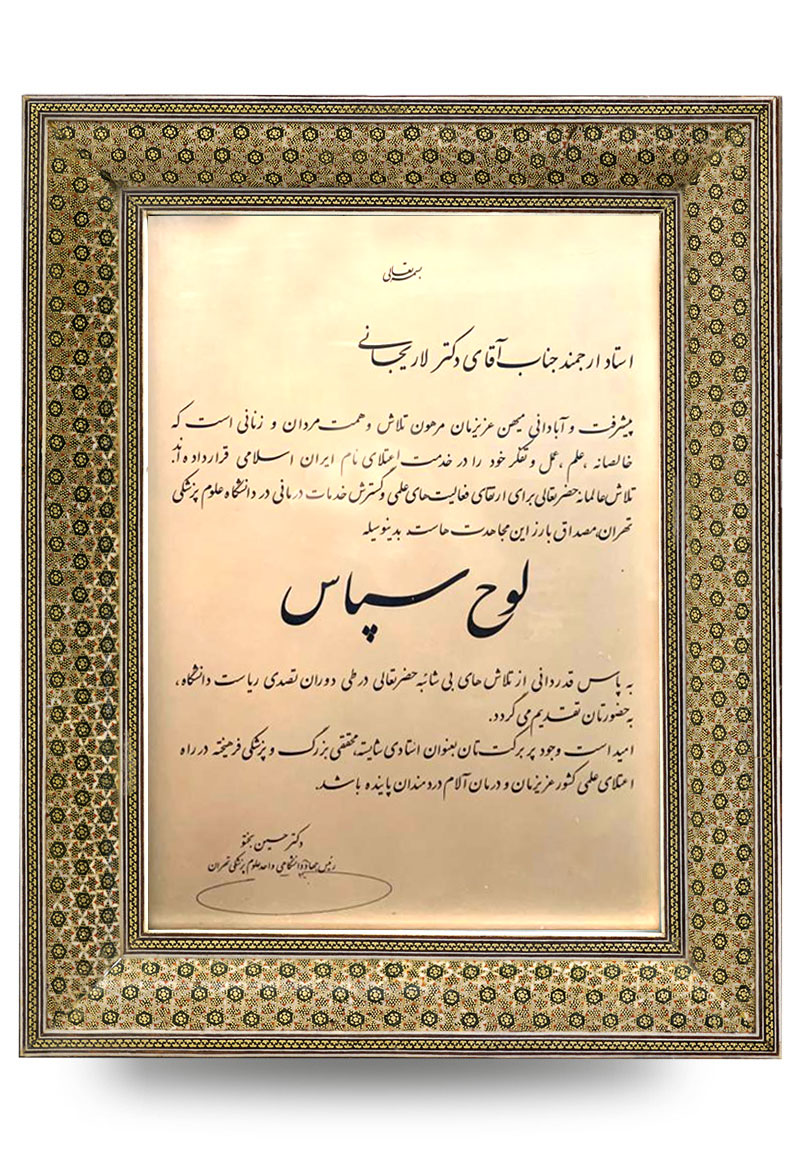 بسمه تعالی
استاد ارجمند جناب آقای دکتر لاریجانی
پیشرفت و آبادانی میهن عزیزمان مرهون تلاش و همت مردان و زنانی است که
خالصانه ، علم ، عمل و تفکر خود را در خدمت اعتلای نام ایران اسلامی قرار داده اند.
تلاش عالمانه حضرتعالی برای ارتقای فعالیت‌های علمی و گسترش خدمات درمانی در دانشگاه علوم پزشکی
تهران، مصداق بارز این مجاهدت هاست. بدینوسیله
لوح سپاس
به پاس قدردانی از تلاش های بی شائبه حضرتعالی در طی دوران تصدی ریاست دانشگاه ،
به حضورتان تقدیم می گردد.
امید است وجود پر برکتتان بعنوان استادی شایسته، محققی بزرگ و پزشکی فرهیخته در راه
اعتلای علمی کشور عزیزمان و درمان آلام دردمندان پاینده باشد.
دکتر حسین
رئیس جهاد دانشگاهی واحد علوم پزشکی تهران